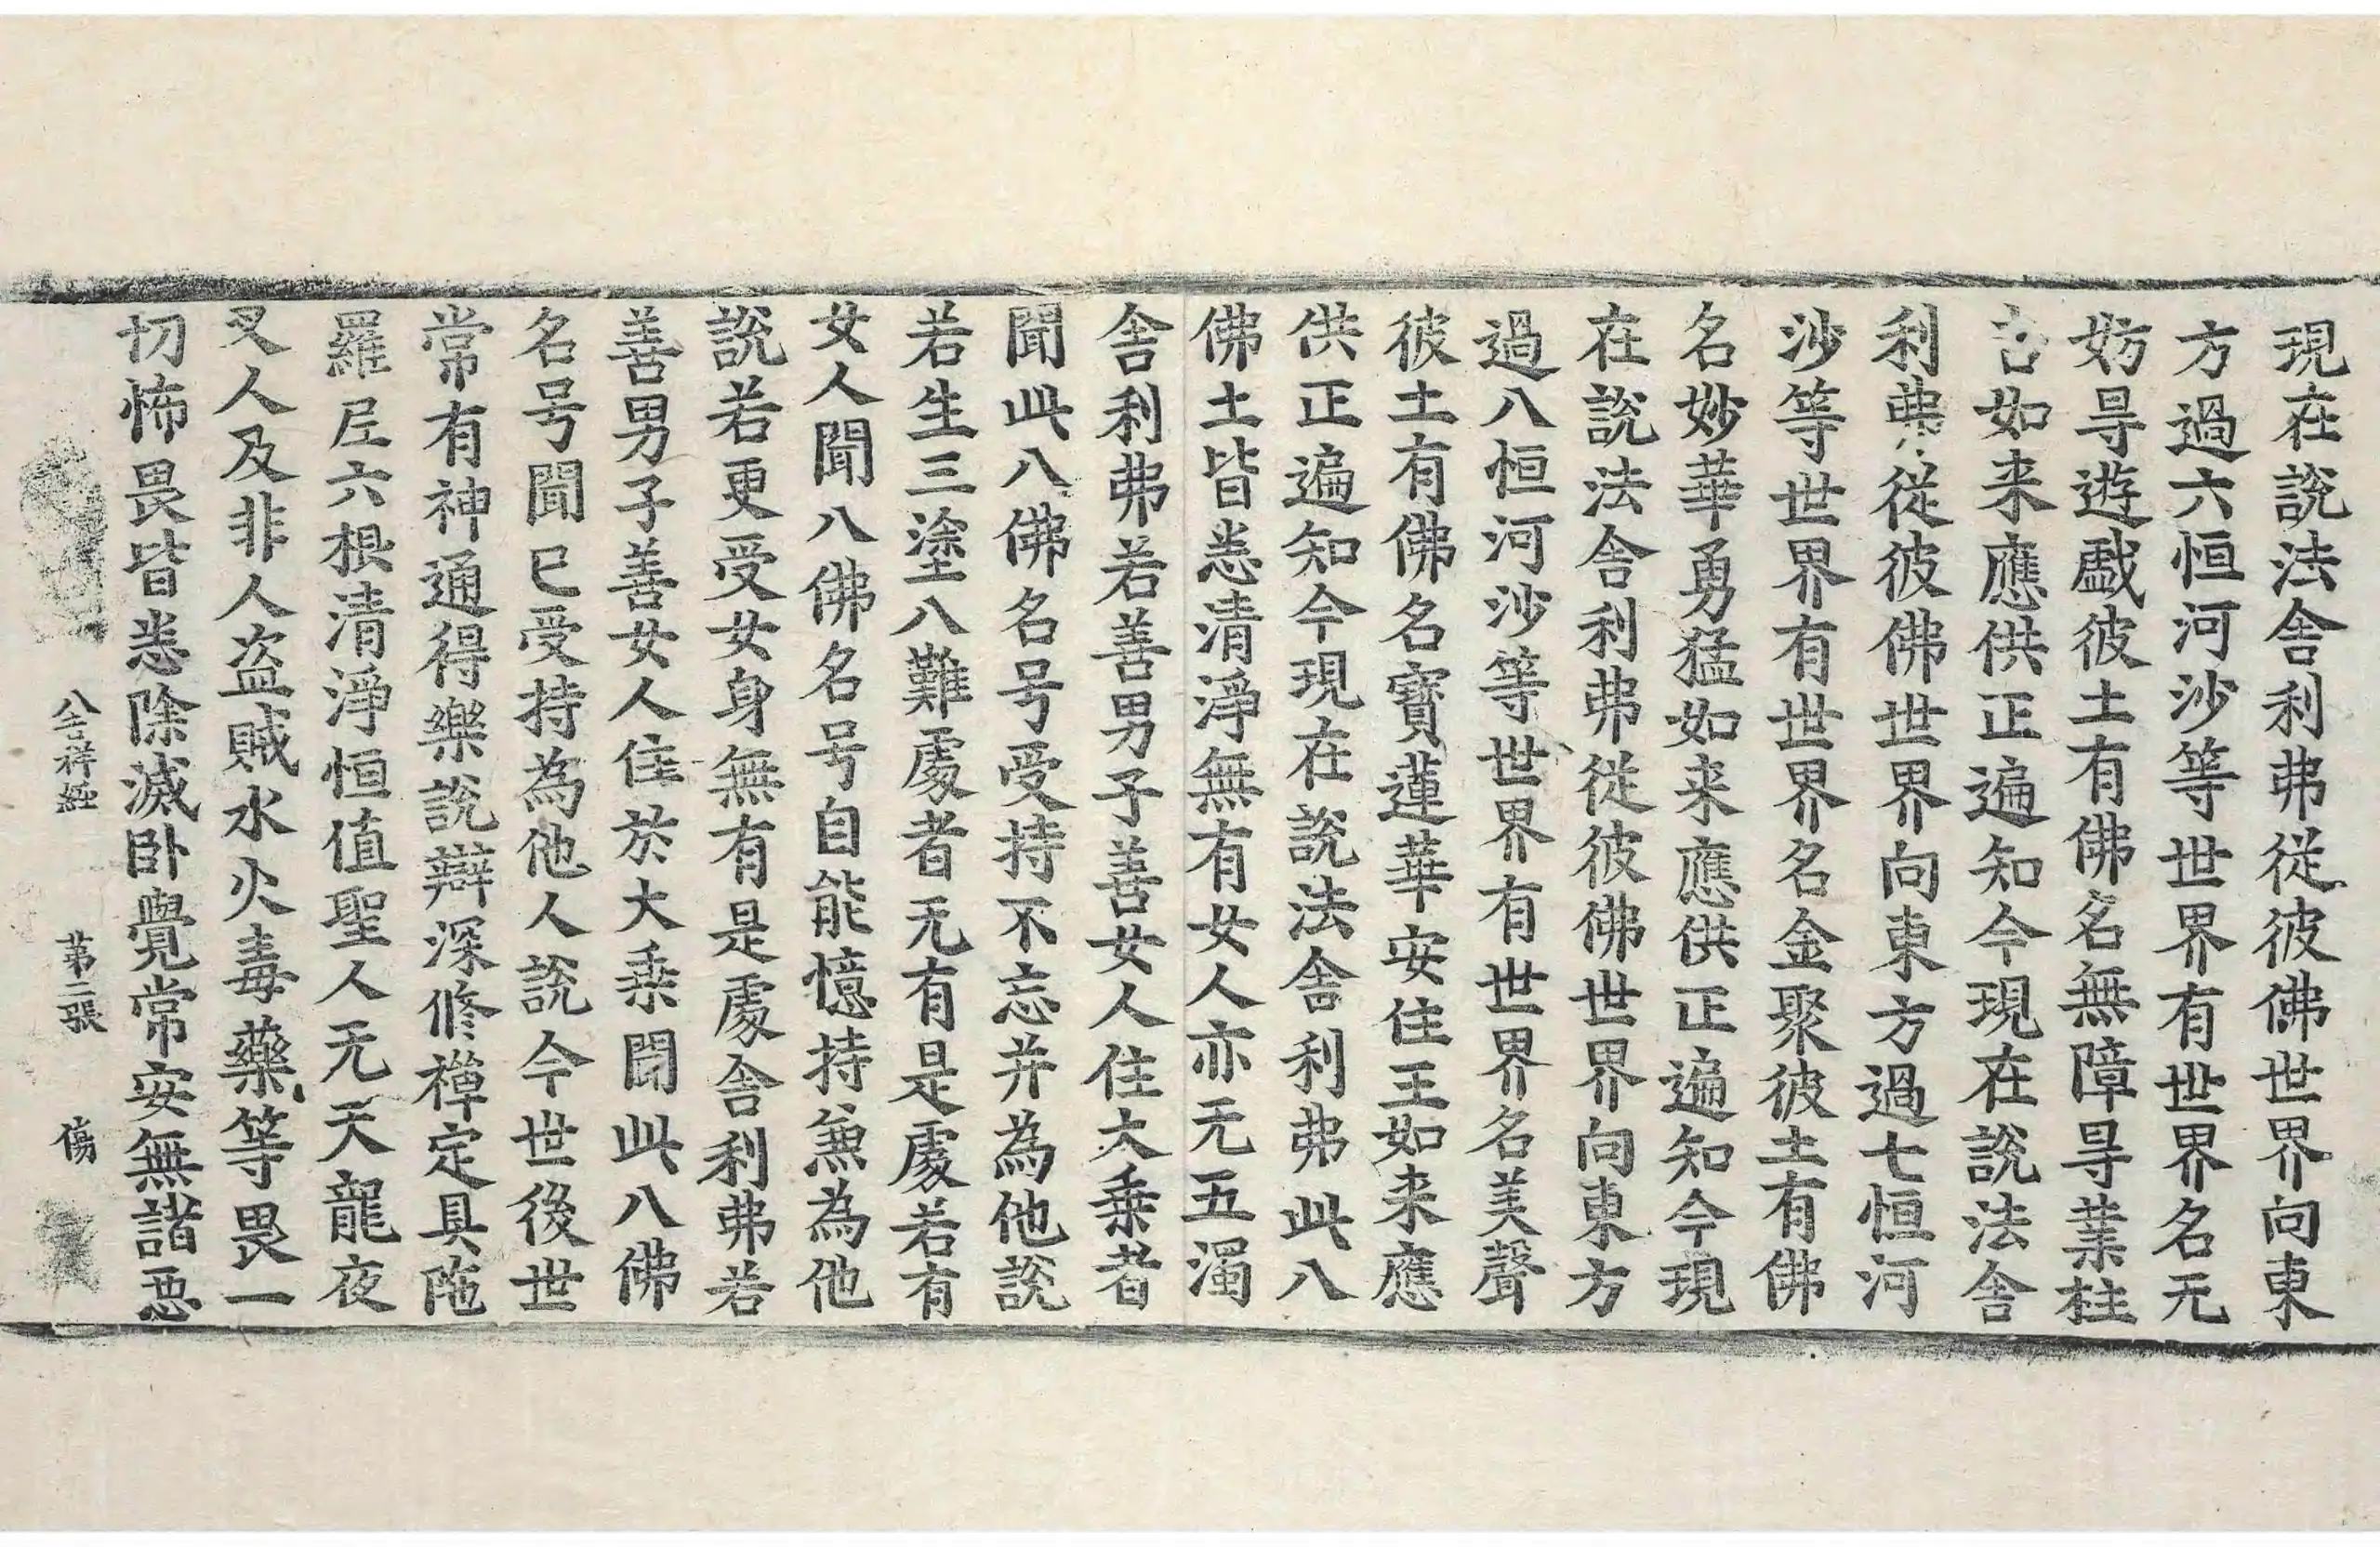 現在說法舍利弗從彼佛世界向東
方過六恒河沙等世界有世界名无
妨㝵遊戲彼土有佛名無障㝵業柱
吉如来應供正遍知今現在說法舍
利弗從彼佛世界向東方過七恒河
沙等世界有世界名金聚彼土有佛
名妙華勇猛如来應供正遍知今現
在說法舍利弗從彼佛世界向東方
過八恒河沙等世界有世界名美聲
彼土有佛名寶蓮華安住王如来應
供正遍知今現在說法舍利弗此八
佛土皆悉清淨無有女人亦无五濁
舍利弗若善男子善女人住大乘者
聞此八佛名号受持不忘并為他說
若生三塗八難處者无有是處若有
女人聞八佛名号自能憶持兼為他
說若更受女身無有是處舍利弗若
善男子善女人住於大乘聞此八佛
名号聞已受持為他人說今世後世
常有神通得樂說辯深修禪定具陁
羅尼六根清淨恒值聖人无天龍夜
叉人及非人盗賊水火毒藥等畏一
切怖畏皆悉除滅卧覺常安無諸惡
八吉祥經 第二張 傷